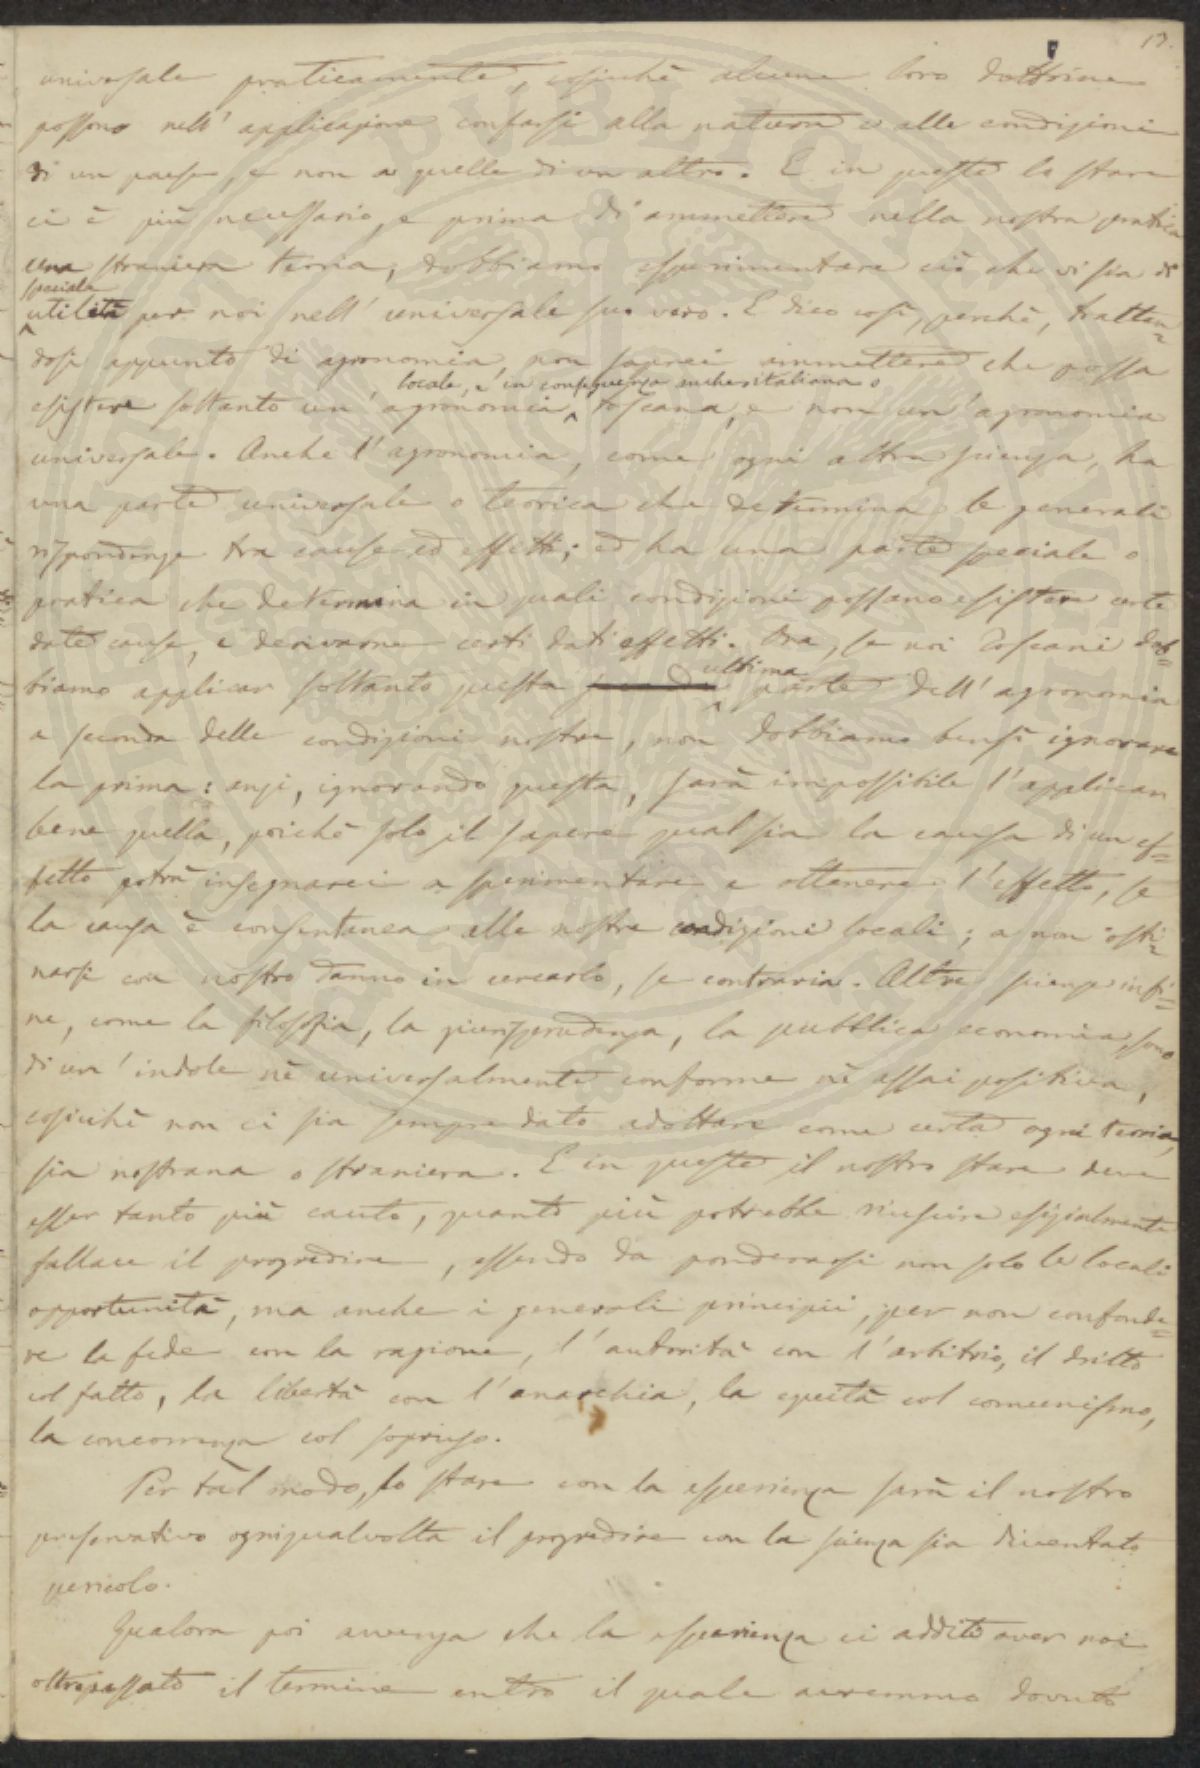 13.
universale praticamente, cosichè alcune loro dottrine
possono nell' applicazione confarsi alla natura e alle condizioni
di un paese, e non a quelle di un altro. E in queste lo stare
ci è più necessario, e prima di ammettere nella nostra pratica
una straniera teoria, dobbiamo esperimentare ciò che vi sia di
speciale
utilità per noi nell' universale suo vero. E dico così, perchè, trattan=
dosi appunto di agronomia, non saprei ammettere che possa
locale, e in conseguenza anche italiana o
esistere soltanto un' agronomia toscana, e non un' agronomia
universale. Anche l' agronomia, come ogni altra scienza, ha
una parte universale o teorica che determina le generali
rispondenze tra cause ed effetti; ed ha una parte speciale o
pratica che determina in quali condizioni possano esistere certe
date cause, e derivarne certi dati effetti. Ora, se noi Toscani dob=
ultima
biamo applicar soltanto questa parte dell' agronomia
a seconda delle condizioni nostre, non dobbiamo bensì ignorare
la prima: anzi, ignorando questa, sarà impossibile l' applicar
bene quella, poichè solo il sapere qual sia la causa di un ef=
fetto potrà insegnarci a sperimentare e ottenere l' effetto, se
la causa è consentanea alle nostre condizioni locali; a non osti=
narsi con nostro danno in cercarlo, se contraria. Altre scienze infi=
ne, come la filosofia, la giurisprudenza, la pubblica economia, sono
di un' indole nè universalmente conforme nè assai positiva,
cosichè non ci sia sempre dato adottare come certa ogni teoria,
sia nostrana o straniera. E in queste il nostro stare deve
esser tanto più cauto, quanto più potrebbe riuscire esizialmente
fallace il progredire, essendo da ponderarsi non solo le locali
opportunità, ma anche i generali principii, per non confonde=
re la fede con la ragione, l' autorità con l' arbitrio, il dritto
col fatto, la libertà con l' anarchia, la equità col comunismo,
la concorrenza col sopruso.
Per tal modo, lo stare con la esperienza sarà il nostro
preservativo ogniqualvolta il progredire con la scienza sia diventato
pericolo.
Qualora poi avvenga che la esperienza ci additi aver noi
oltrepassato il termine entro il quale avremmo dovuto